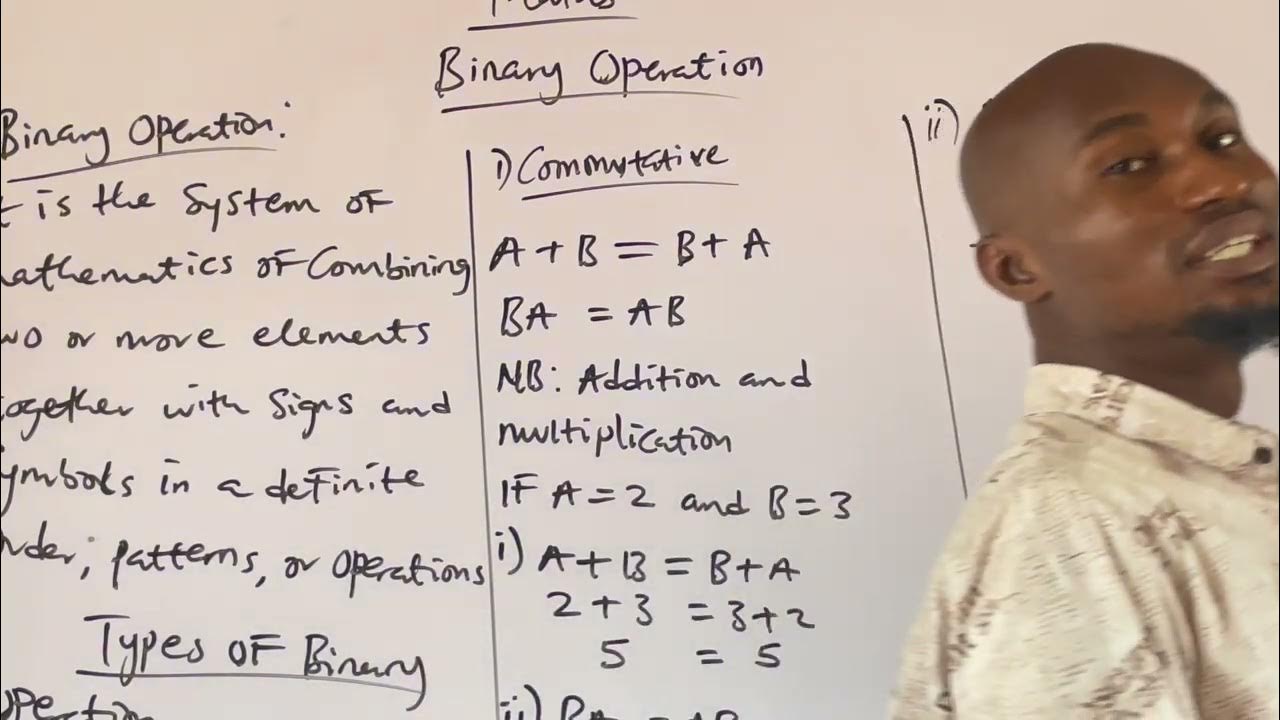 Binary Operation
Binary Operation:
is the System OF
athematics OF Combining
wo or more elements
ogether with Signs and
ymbols in a deFinite
rder, patterns, or Operations
Types OF Binary
Operation
i) Commutative
A + B = B + A
BA = AB
NB: Addition and
multiplication
IF A = 2 and B = 3
i) A + B = B + A
2 + 3 = 3 + 2
5 = 5
ii) BA = AB
ii)